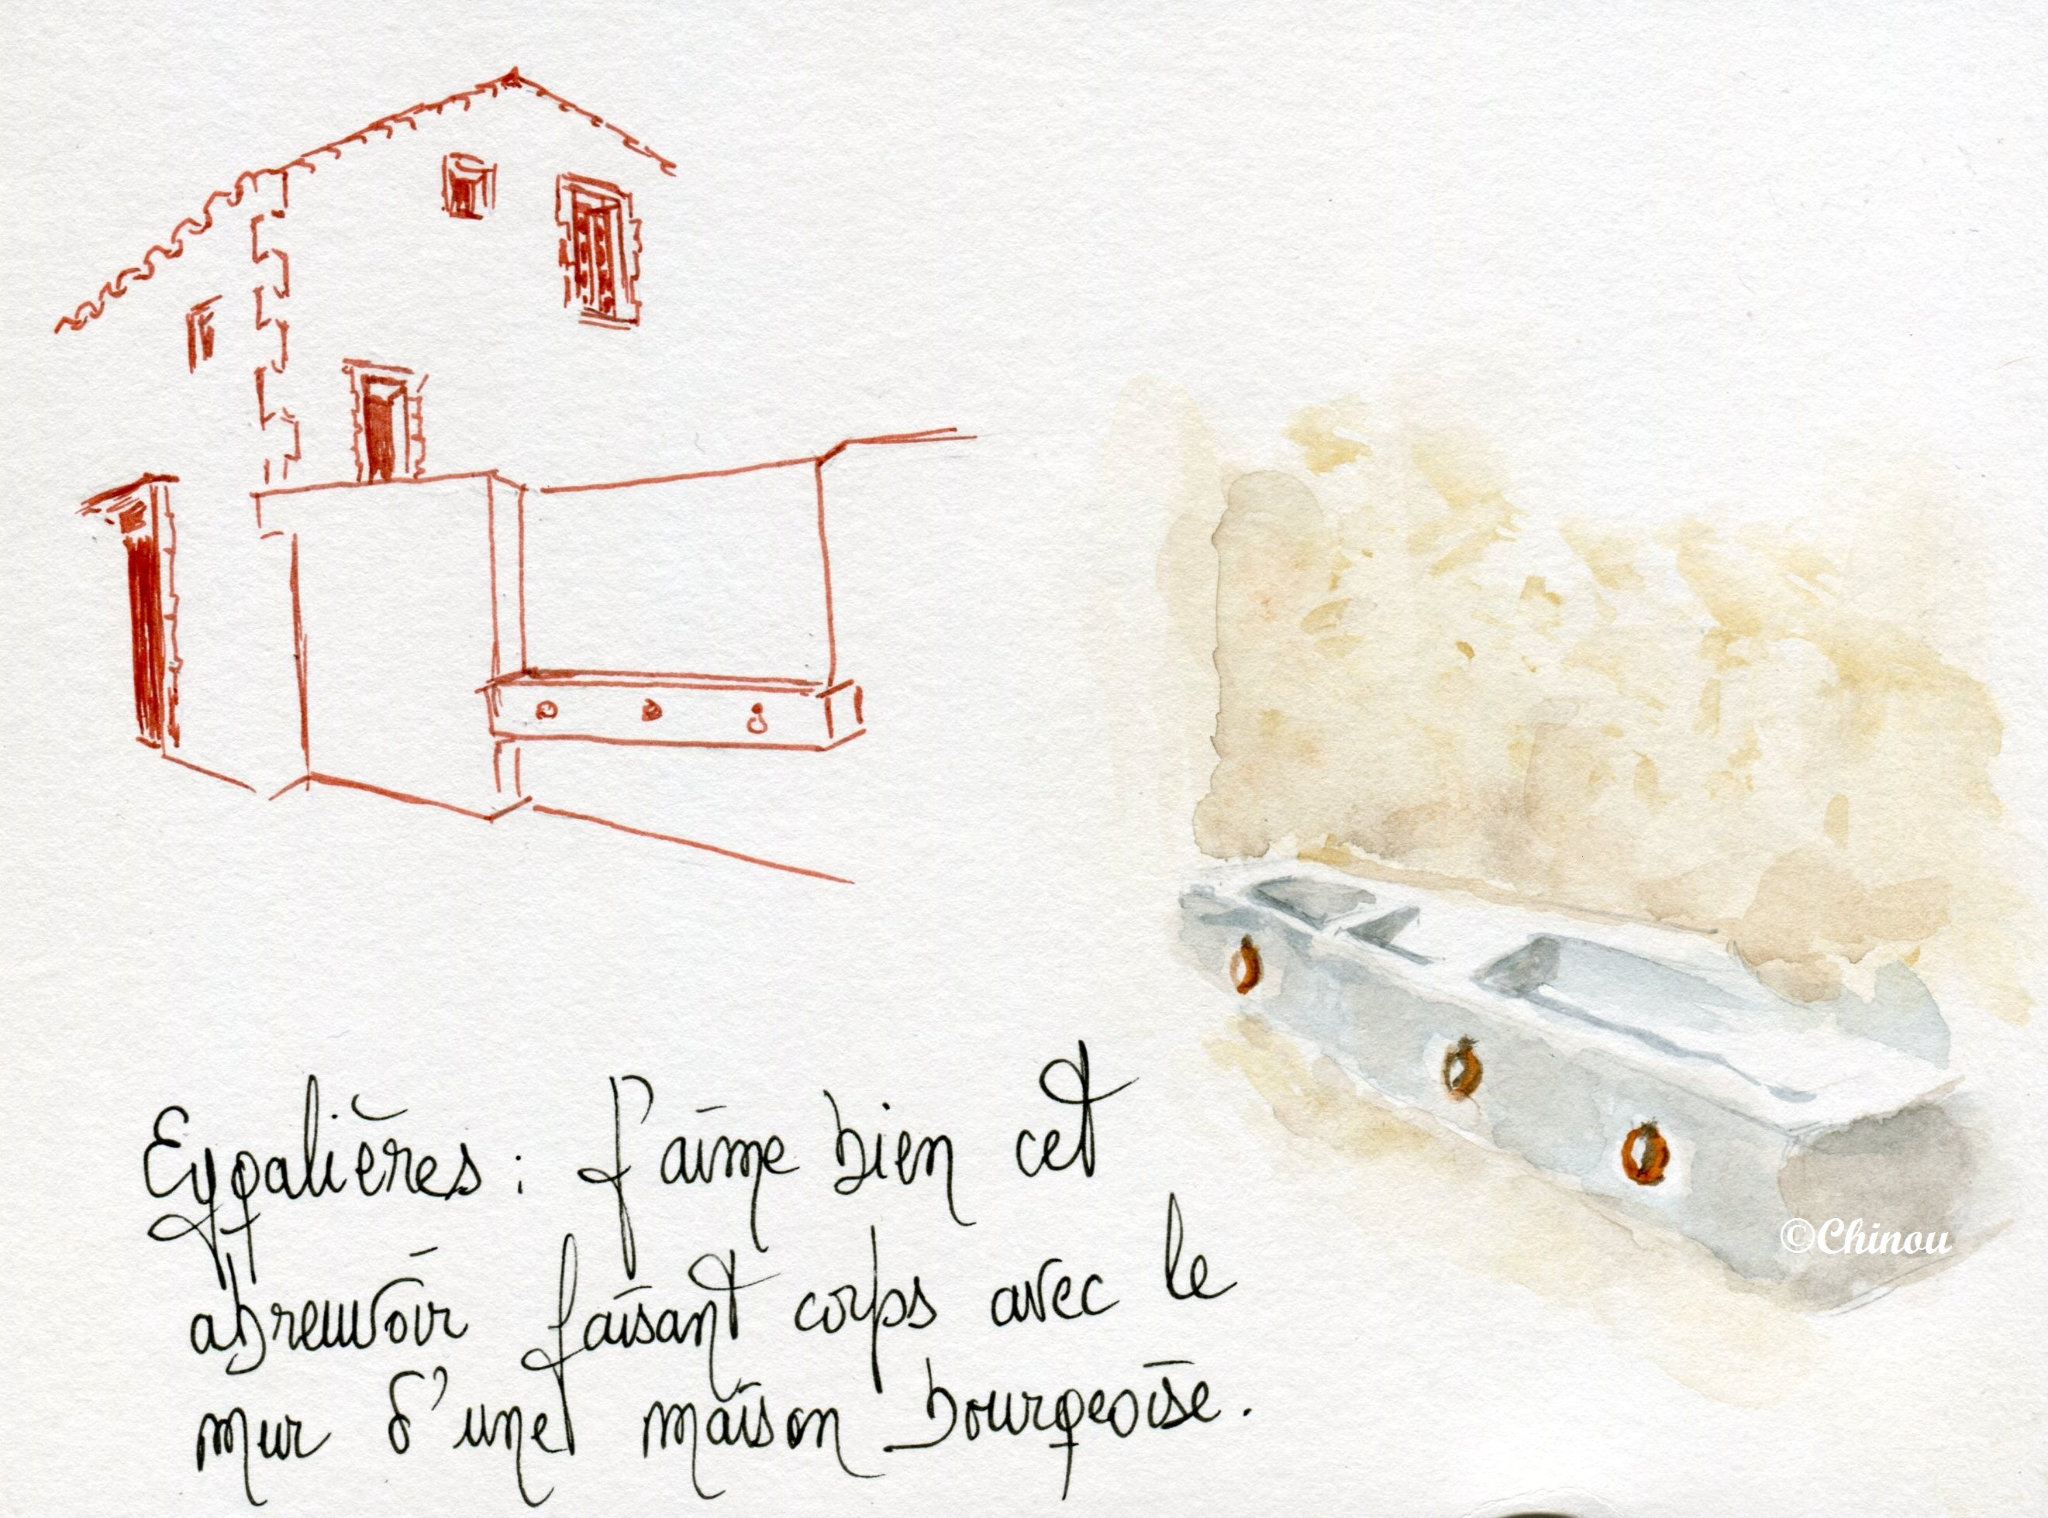 Eygalières : J'aime bien cet
abreuvoir faisant corps avec le
mur d'une maison bourgeoise.
©Chinou